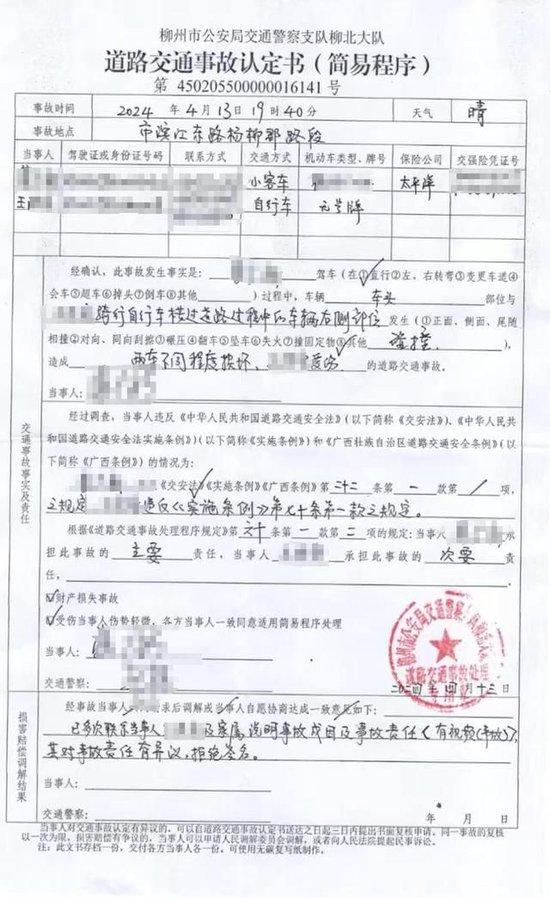 柳州市公安局交通警察支队柳北大队
道路交通事故认定书（简易程序）
第 450205500000016141 号
事故时间 2024 年 4 月 13 日 19 时 40 分 天气 晴
事故地点 市滨江东路杨柳郡路段
当事人 驾驶证或身份证号码 联系方式 交通方式 机动车类型、牌号 保险公司 交强险凭证号
小客车 太平洋
王 自行车 无号牌
交通事故事实及责任
经确认，此事故发生事实是： 驾车（在①直行②左、右转弯③变更车道④
会车⑤超车⑥掉头⑦倒车⑧其他 ）过程中，车辆 车头 部位与
骑行自行车横过道路过程中的车辆左侧部位 发生（①正面、侧面、尾随
相撞②对向、同向刮擦③碾压④翻车⑤坠车⑥失火⑦撞固定物⑧其他 碰撞 ），
造成 两车不同程度损坏、 受伤 的道路交通事故。
当事人：
经过调查，当事人违反《中华人民共和国道路交通安全法》（以下简称《交安法》）、《中华人民共
和国道路交通安全法实施条例》（以下简称《实施条例》）和《广西壮族自治区道路交通安全条例》（以
下简称《广西条例》）的情况为：
《交安法》《实施条例》《广西条例》第 二十二 条 一 款第 / 项，
之规定 违反《实施条例》第七十条第一款之规定。
根据《道路交通事故处理程序规定》第 六十 条第 一 款第 二 项的规定：当事人 承
担此事故的 主要 责任，当事人 承担此事故的 次要 责
任，
财产损失事故
受伤当事人伤势轻微，各方当事人一致同意适用简易程序处理
当事人：
交通警察：
柳州市公安局交通警察支队柳北大队
道路交通事故处理
专用章
二〇二四年 四月 十三日
损害赔偿调解结果
经事故当事人共同请求后调解或当事人自愿协商达成一致意见如下：
已多次联系当事人 及家属说明事故成因及事故责任（有视频（事故）），
其对事故责任有异议，拒绝签名。
当事人：
交通警察： 年 月 日
当事人对交通事故认定有异议的，可以自道路交通事故认定书送达之日起三日内提出书面复核申请。同一事故的复核
以一次为限。损害赔偿有争议的，当事人可以申请人民调解委员会调解，或者向人民法院提起民事诉讼。
注：此文书存档一份，交付各方当事人各一份。可使用无碳复写纸制作。